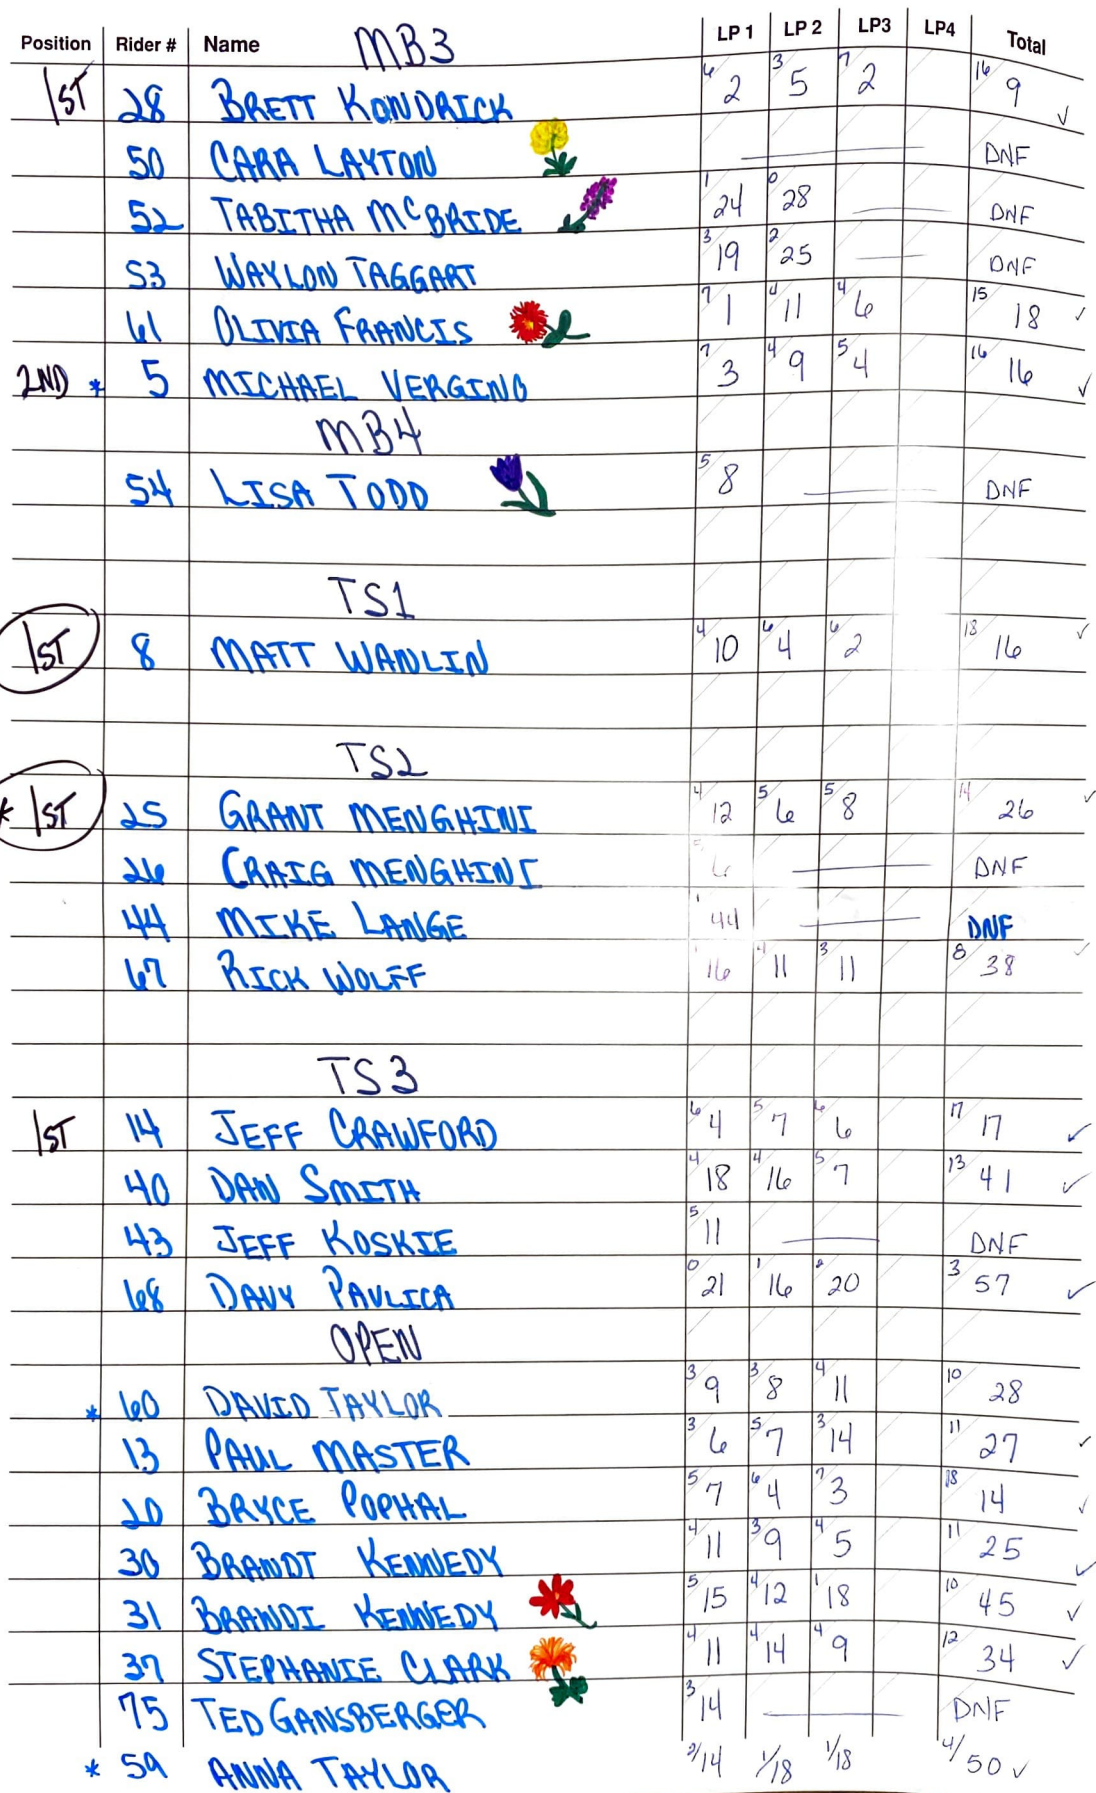 Position Rider # Name MB3 LP 1 LP 2 LP3 LP4 Total
1ST 28 BRETT KONDRICK 6 2 3 5 7 2 16 9 ✓
50 CARA LAYTON DNF
52 TABITHA McBRIDE 1 24 0 28 DNF
53 WAYLON TAGGART 3 19 2 25 DNF
61 OLIVIA FRANCIS 7 1 4 11 4 6 15 18 ✓
2ND * 5 MICHAEL VERGINO 7 3 4 9 5 4 16 16 ✓
MB4
54 LISA TODD 5 8 DNF
TS1
1ST 8 MATT WANLIN 4 10 6 4 6 2 18 16 ✓
TS2
* 1ST 25 GRANT MENGHINI 4 12 5 6 5 8 14 26 ✓
26 CRAIG MENGHINI 5 6 DNF
44 MIKE LANGE 1 44 DNF
67 RICK WOLFF 1 16 4 11 3 11 8 38 ✓
TS3
1ST 14 JEFF CRAWFORD 6 4 5 7 6 6 17 17 ✓
40 DAN SMITH 4 18 4 16 5 7 13 41 ✓
43 JEFF KOSKIE 5 11 DNF
68 DAVY PAVLICA 0 21 1 16 2 20 3 57 ✓
OPEN
* 60 DAVID TAYLOR 3 9 3 8 4 11 10 28
13 PAUL MASTER 3 6 5 7 3 14 11 27 ✓
20 BRYCE POPHAL 5 7 6 4 7 3 18 14 ✓
30 BRANDT KENNEDY 4 11 3 9 4 5 11 25 ✓
31 BRANDI KENNEDY 5 15 4 12 1 18 10 45 ✓
37 STEPHANIE CLARK 4 11 4 14 4 9 12 34 ✓
75 TED GANSBERGER 3 14 DNF
* 59 ANNA TAYLOR 2/14 1/18 1/18 4/50 ✓